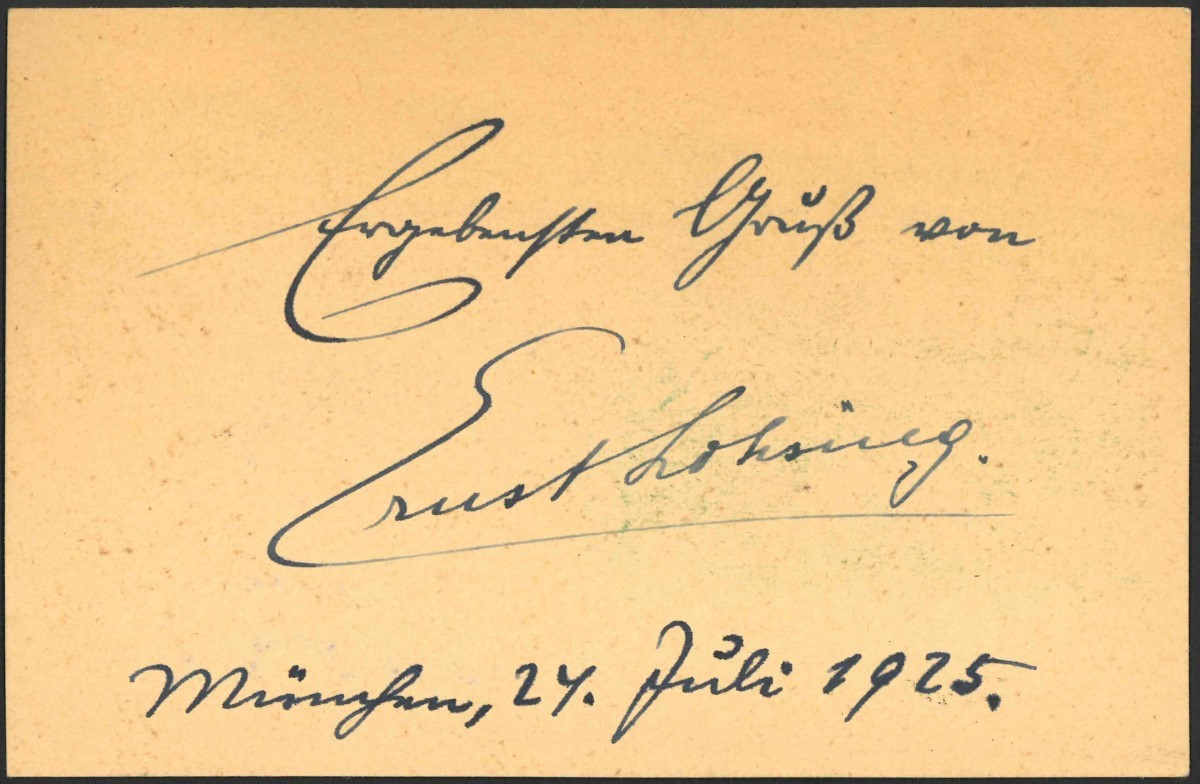 Ergebensten Gruß von
Ernst Lohsing.
München, 24. Juli 1925.